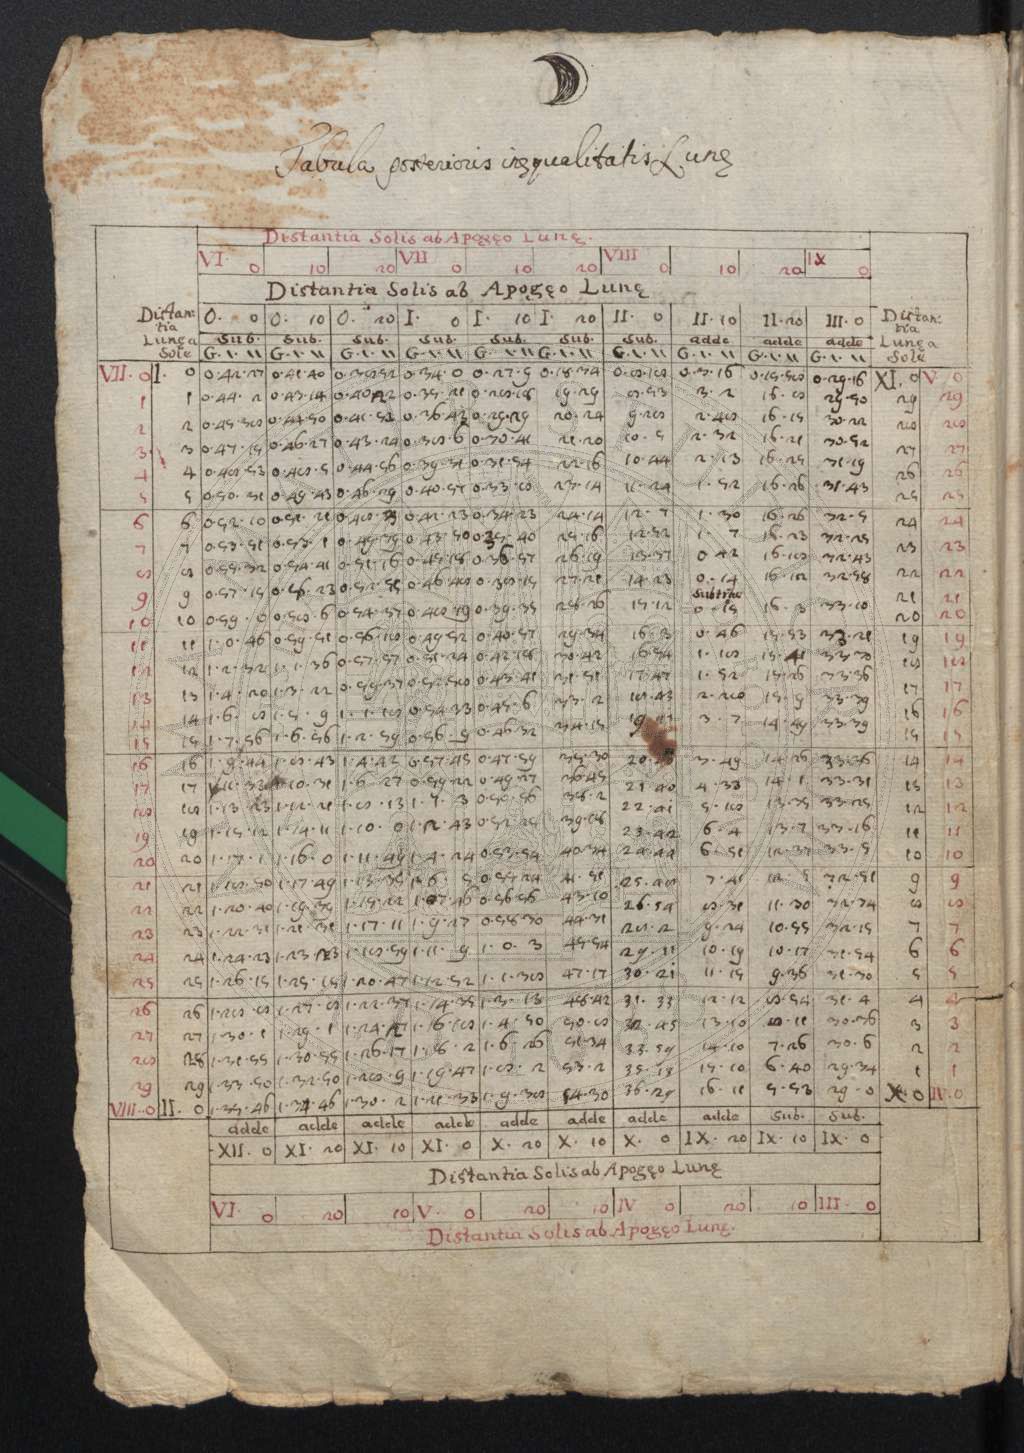 Tabula posterioris ineqqualitatis Lunę
Distantia Solis ab Apogęo Lunę.
VI. 0 10 20 VII 0 10 20 VIII 0 10 20 IX 0
Distantia Solis ab Apogęo Lunę
Distantia Lunę a Sole 0. 0 0. 10 0. 20 I. 0 I. 10 I. 20 II. 0 II. 10 II. 20 III. 0 Distantia Lunę a Sole
Sub. Sub. Sub. Sub. Sub. Sub. Sub. adde adde adde
G. ı. ıı G. ı. ıı G. ı. ıı G. ı. ıı G. ı. ıı G. ı. ıı G. ı. ıı G. ı. ıı G. ı. ıı G. ı. ıı
VII. 0 I. 0 0.42.27 0.41.40 0.38.52 0.34.0 0.27.9 0.18.34 0.8.18 0.3.16 0.15.58 0.29.16 XI. 0 V. 0
1 1 0.44.2 0.43.14 0.40.22 0.35.21 0.28.18 19.29 8.53 3.2 16.8 29.50 29 29
2 2 0.45.38 0.44.50 0.41.53 0.36.43 0.29.29 20.24 9.28 2.48 16.15 30.22 28 28
3 3 0.47.15 0.46.27 0.43.24 0.38.6 0.30.41 21.20 10.5 2.32 16.21 30.52 27 27
4 4 0.48.53 0.48.5 0.44.56 0.39.31 0.31.54 22.16 10.44 2.13 16.25 31.19 26 26
5 5 0.50.31 0.49.43 0.46.29 0.40.57 0.33.8 23.14 11.24 1.52 16.26 31.43 25 25
6 6 0.52.10 0.51.21 0.48.3 0.42.23 0.34.23 24.14 12.7 1.30 16.26 32.5 24 24
7 7 0.53.51 0.53.1 0.49.39 0.43.50 0.35.40 25.16 12.52 1.7 16.23 32.25 23 23
8 8 0.55.32 0.54.41 0.51.16 0.45.18 0.36.57 26.19 13.37 0.42 16.18 32.43 22 22
9 9 0.57.15 0.56.23 0.52.55 0.46.48 0.38.15 27.21 14.23 0.14 16.12 32.58 21 21
Subtrae
10 10 0.59.0 0.58.6 0.54.37 0.48.19 0.39.35 28.26 15.12 0.15 16.3 33.10 20 20
11 11 1.0.46 0.59.51 0.56.18 0.49.52 0.40.57 29.34 16.3 0.46 15.53 33.21 19 19
12 12 1.2.32 1.1.36 0.57.57 0.51.24 0.42.18 30.42 16.54 1.18 15.41 33.30 18 18
13 13 1.4.20 1.3.22 0.59.37 0.52.58 0.43.41 31.51 17.47 1.52 15.26 33.36 17 17
14 14 1.6.8 1.5.9 1.1.18 0.54.33 0.45.6 33.2 18.43 2.28 15.9 33.39 16 16
15 15 1.7.56 1.6.56 1.2.59 0.56.9 0.46.32 34.15 3.7 14.49 33.39 15 15
16 16 1.9.44 1.8.43 1.4.42 0.57.45 0.47.59 35.30 3.49 14.26 33.36 14 14
17 17 1.11.33 1.10.31 1.6.27 0.59.22 0.49.27 36.45 21.40 4.33 14.1 33.31 13 13
18 18 1.13.23 1.12.21 1.8.13 1.1.3 0.50.56 38.2 22.41 5.18 13.35 33.25 12 12
19 19 1.15.12 1.14.11 1.10.0 1.2.43 0.52.25 39.18 23.42 6.4 13.7 33.16 11 11
20 20 1.17.1 1.16.0 1.11.49 1.4.24 0.53.54 40.34 24.44 6.51 12.37 33.5 10 10
21 21 1.18.50 1.17.49 1.13.35 1.6.5 0.55.24 41.51 25.48 7.41 12.5 32.51 9 9
22 22 1.20.40 1.19.39 1.15.22 1.7.46 0.56.56 43.10 26.54 8.31 11.30 32.34 8 8
23 23 1.22.31 1.21.31 1.17.11 1.9.27 0.58.30 44.31 28.2 9.24 10.55 32.15 7 7
24 24 1.24.23 1.23.23 1.18.59 1.11.9 1.0.3 45.54 29.11 10.19 10.17 31.54 6 6
25 25 1.26.15 1.25.15 1.20.47 1.12.52 1.1.38 47.17 30.21 11.15 9.36 31.30 5 5
26 26 1.28.8 1.27.8 1.22.37 1.14.35 1.3.13 48.42 31.33 12.12 8.54 31.4 4 4
27 27 1.30.1 1.29.1 1.24.27 1.16.18 1.4.50 50.8 32.45 13.10 8.11 30.36 3 3
28 28 1.31.55 1.30.55 1.26.17 1.18.2 1.6.26 51.34 33.59 14.10 7.26 30.6 2 2
29 29 1.33.50 1.32.50 1.28.9 1.19.47 1.8.2 53.2 35.13 15.10 6.40 29.34 1 1
VIII. 0 II. 0 1.35.46 1.34.46 1.30.2 1.21.33 1.9.38 54.30 36.29 16.11 5.53 29.0 X. 0 IV. 0
adde adde adde adde adde adde adde adde sub. sub.
XII. 0 XI. 20 XI. 10 XI. 0 X. 20 X. 10 X. 0 IX. 20 IX. 10 IX. 0
Distantia Solis ab Apogęo Lunę
VI. 0 20 10 V. 0 20 10 IV 0 20 10 III. 0
Distantia Solis ab Apogęo Lunę.